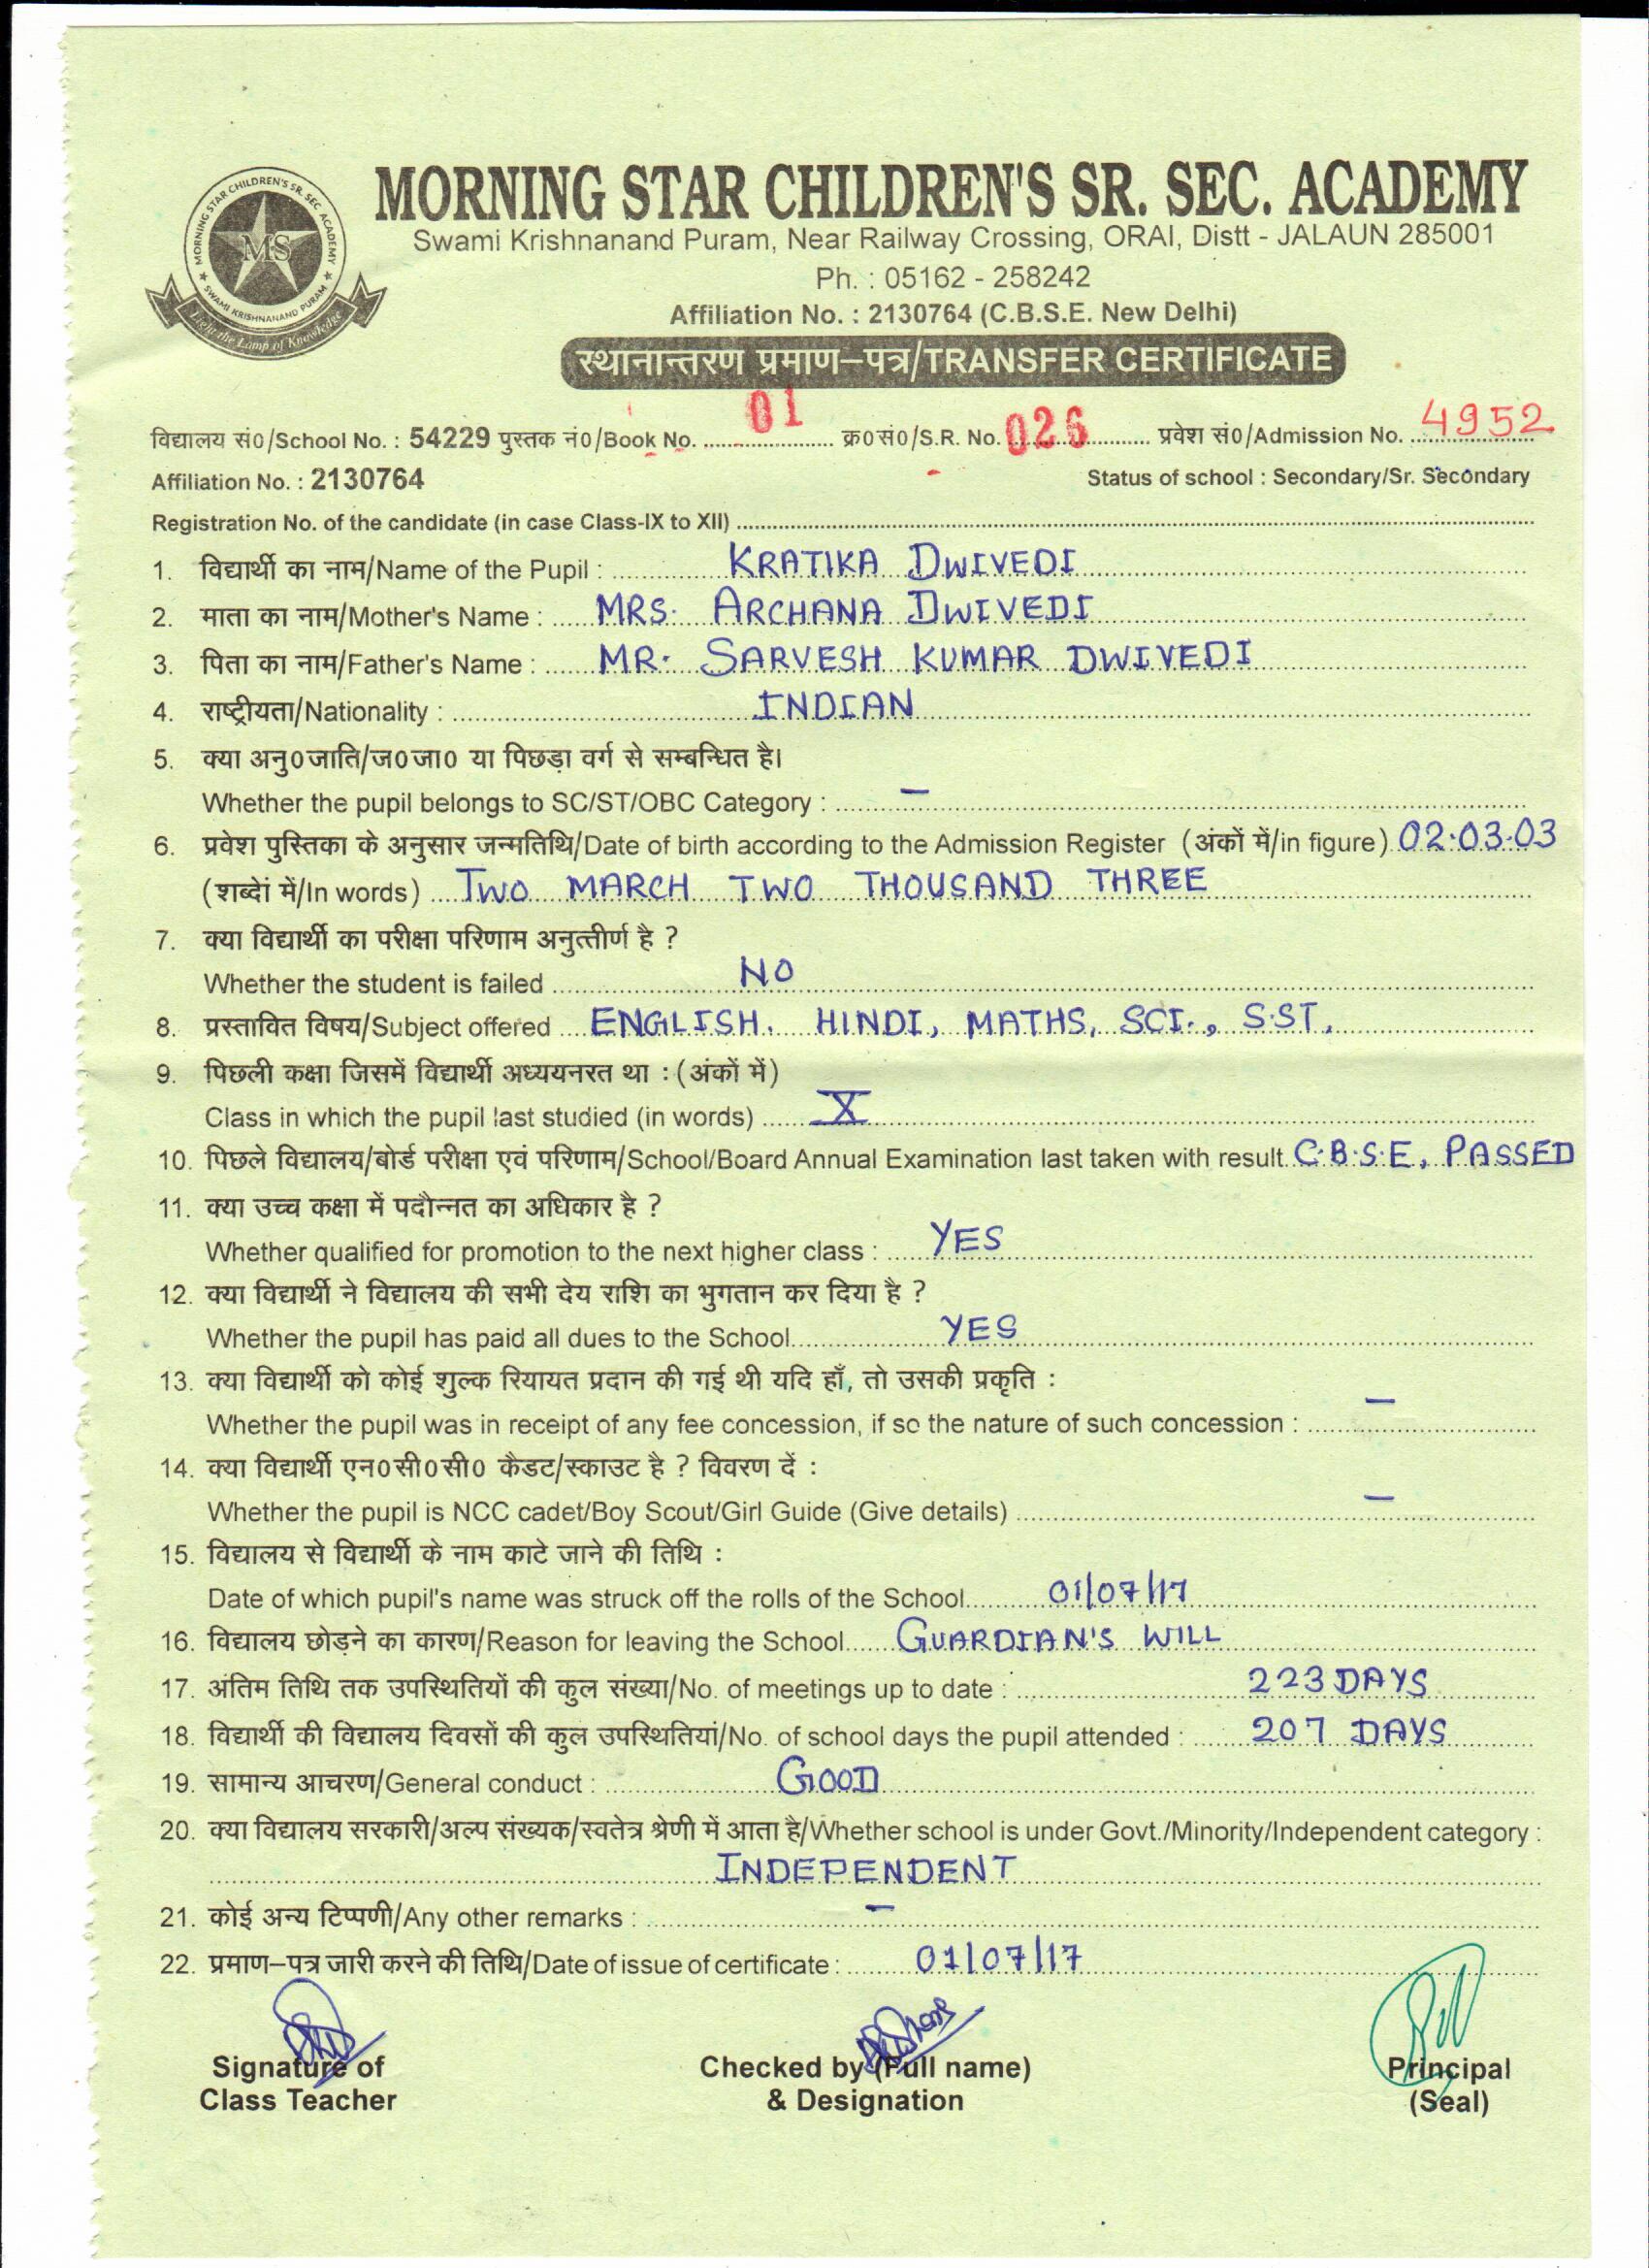 MORNING STAR CHILDREN'S SR. SEC. ACADEMY
MORNING STAR CHILDREN'S SR. SEC. ACADEMY
SWAMI KRISHNANAND PURAM
MS
Light the Lamp of Knowledge
Swami Krishnanand Puram, Near Railway Crossing, ORAI, Distt - JALAUN 285001
Ph. : 05162 - 258242
Affiliation No. : 2130764 (C.B.S.E. New Delhi)
स्थानान्तरण प्रमाण–पत्र/TRANSFER CERTIFICATE
विद्यालय सं0/School No. : 54229 पुस्तक नं0/Book No. 01 क्र0सं0/S.R. No. 026 प्रवेश सं0/Admission No. 4952
Affiliation No. : 2130764 Status of school : Secondary/Sr. Secondary
Registration No. of the candidate (in case Class-IX to XII)
1. विद्यार्थी का नाम/Name of the Pupil : KRATIKA DWIVEDI
2. माता का नाम/Mother's Name : MRS. ARCHANA DWIVEDI
3. पिता का नाम/Father's Name : MR. SARVESH KUMAR DWIVEDI
4. राष्ट्रीयता/Nationality : INDIAN
5. क्या अनु0जाति/ज0जा0 या पिछड़ा वर्ग से सम्बन्धित है।
Whether the pupil belongs to SC/ST/OBC Category : –
6. प्रवेश पुस्तिका के अनुसार जन्मतिथि/Date of birth according to the Admission Register (अंकों में/in figure) 02.03.03
(शब्देां में/In words) TWO MARCH TWO THOUSAND THREE
7. क्या विद्यार्थी का परीक्षा परिणाम अनुत्तीर्ण है ?
Whether the student is failed NO
8. प्रस्तावित विषय/Subject offered ENGLISH, HINDI, MATHS, SCI., S.ST.
9. पिछली कक्षा जिसमें विद्यार्थी अध्ययनरत था : (अंकों में)
Class in which the pupil last studied (in words) X
10. पिछले विद्यालय/बोर्ड परीक्षा एवं परिणाम/School/Board Annual Examination last taken with result C.B.S.E, PASSED
11. क्या उच्च कक्षा में पदौन्नत का अधिकार है ?
Whether qualified for promotion to the next higher class : YES
12. क्या विद्यार्थी ने विद्यालय की सभी देय राशि का भुगतान कर दिया है ?
Whether the pupil has paid all dues to the School YES
13. क्या विद्यार्थी को कोई शुल्क रियायत प्रदान की गई थी यदि हाँ, तो उसकी प्रकृति :
Whether the pupil was in receipt of any fee concession, if so the nature of such concession : –
14. क्या विद्यार्थी एन0सी0सी0 कैडट/स्काउट है ? विवरण दें :
Whether the pupil is NCC cadet/Boy Scout/Girl Guide (Give details) –
15. विद्यालय से विद्यार्थी के नाम काटे जाने की तिथि :
Date of which pupil's name was struck off the rolls of the School 01/07/17
16. विद्यालय छोड़ने का कारण/Reason for leaving the School GUARDIAN'S WILL
17. अंतिम तिथि तक उपस्थितियों की कुल संख्या/No. of meetings up to date : 223 DAYS
18. विद्यार्थी की विद्यालय दिवसों की कुल उपस्थितियां/No. of school days the pupil attended : 207 DAYS
19. सामान्य आचरण/General conduct : GOOD
20. क्या विद्यालय सरकारी/अल्प संख्यक/स्वतेत्र श्रेणी में आता है/Whether school is under Govt./Minority/Independent category :
INDEPENDENT
21. कोई अन्य टिप्पणी/Any other remarks : –
22. प्रमाण–पत्र जारी करने की तिथि/Date of issue of certificate : 01/07/17
Signature of Checked by (Full name) Principal
Class Teacher & Designation (Seal)